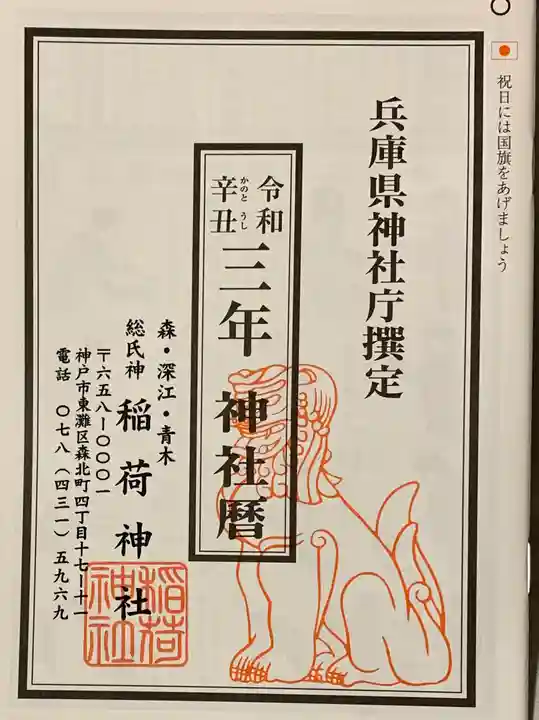 祝日には国旗をあげましょう
兵庫県神社庁撰定
令和
辛丑
かのと うし
三年 神社暦
森・深江・青木
総氏神 稲荷神社
〒六五八ー〇〇〇一
神戸市東灘区森北町四丁目十七ー十一
電話 〇七八（四三一）五九六九
稲荷
神社